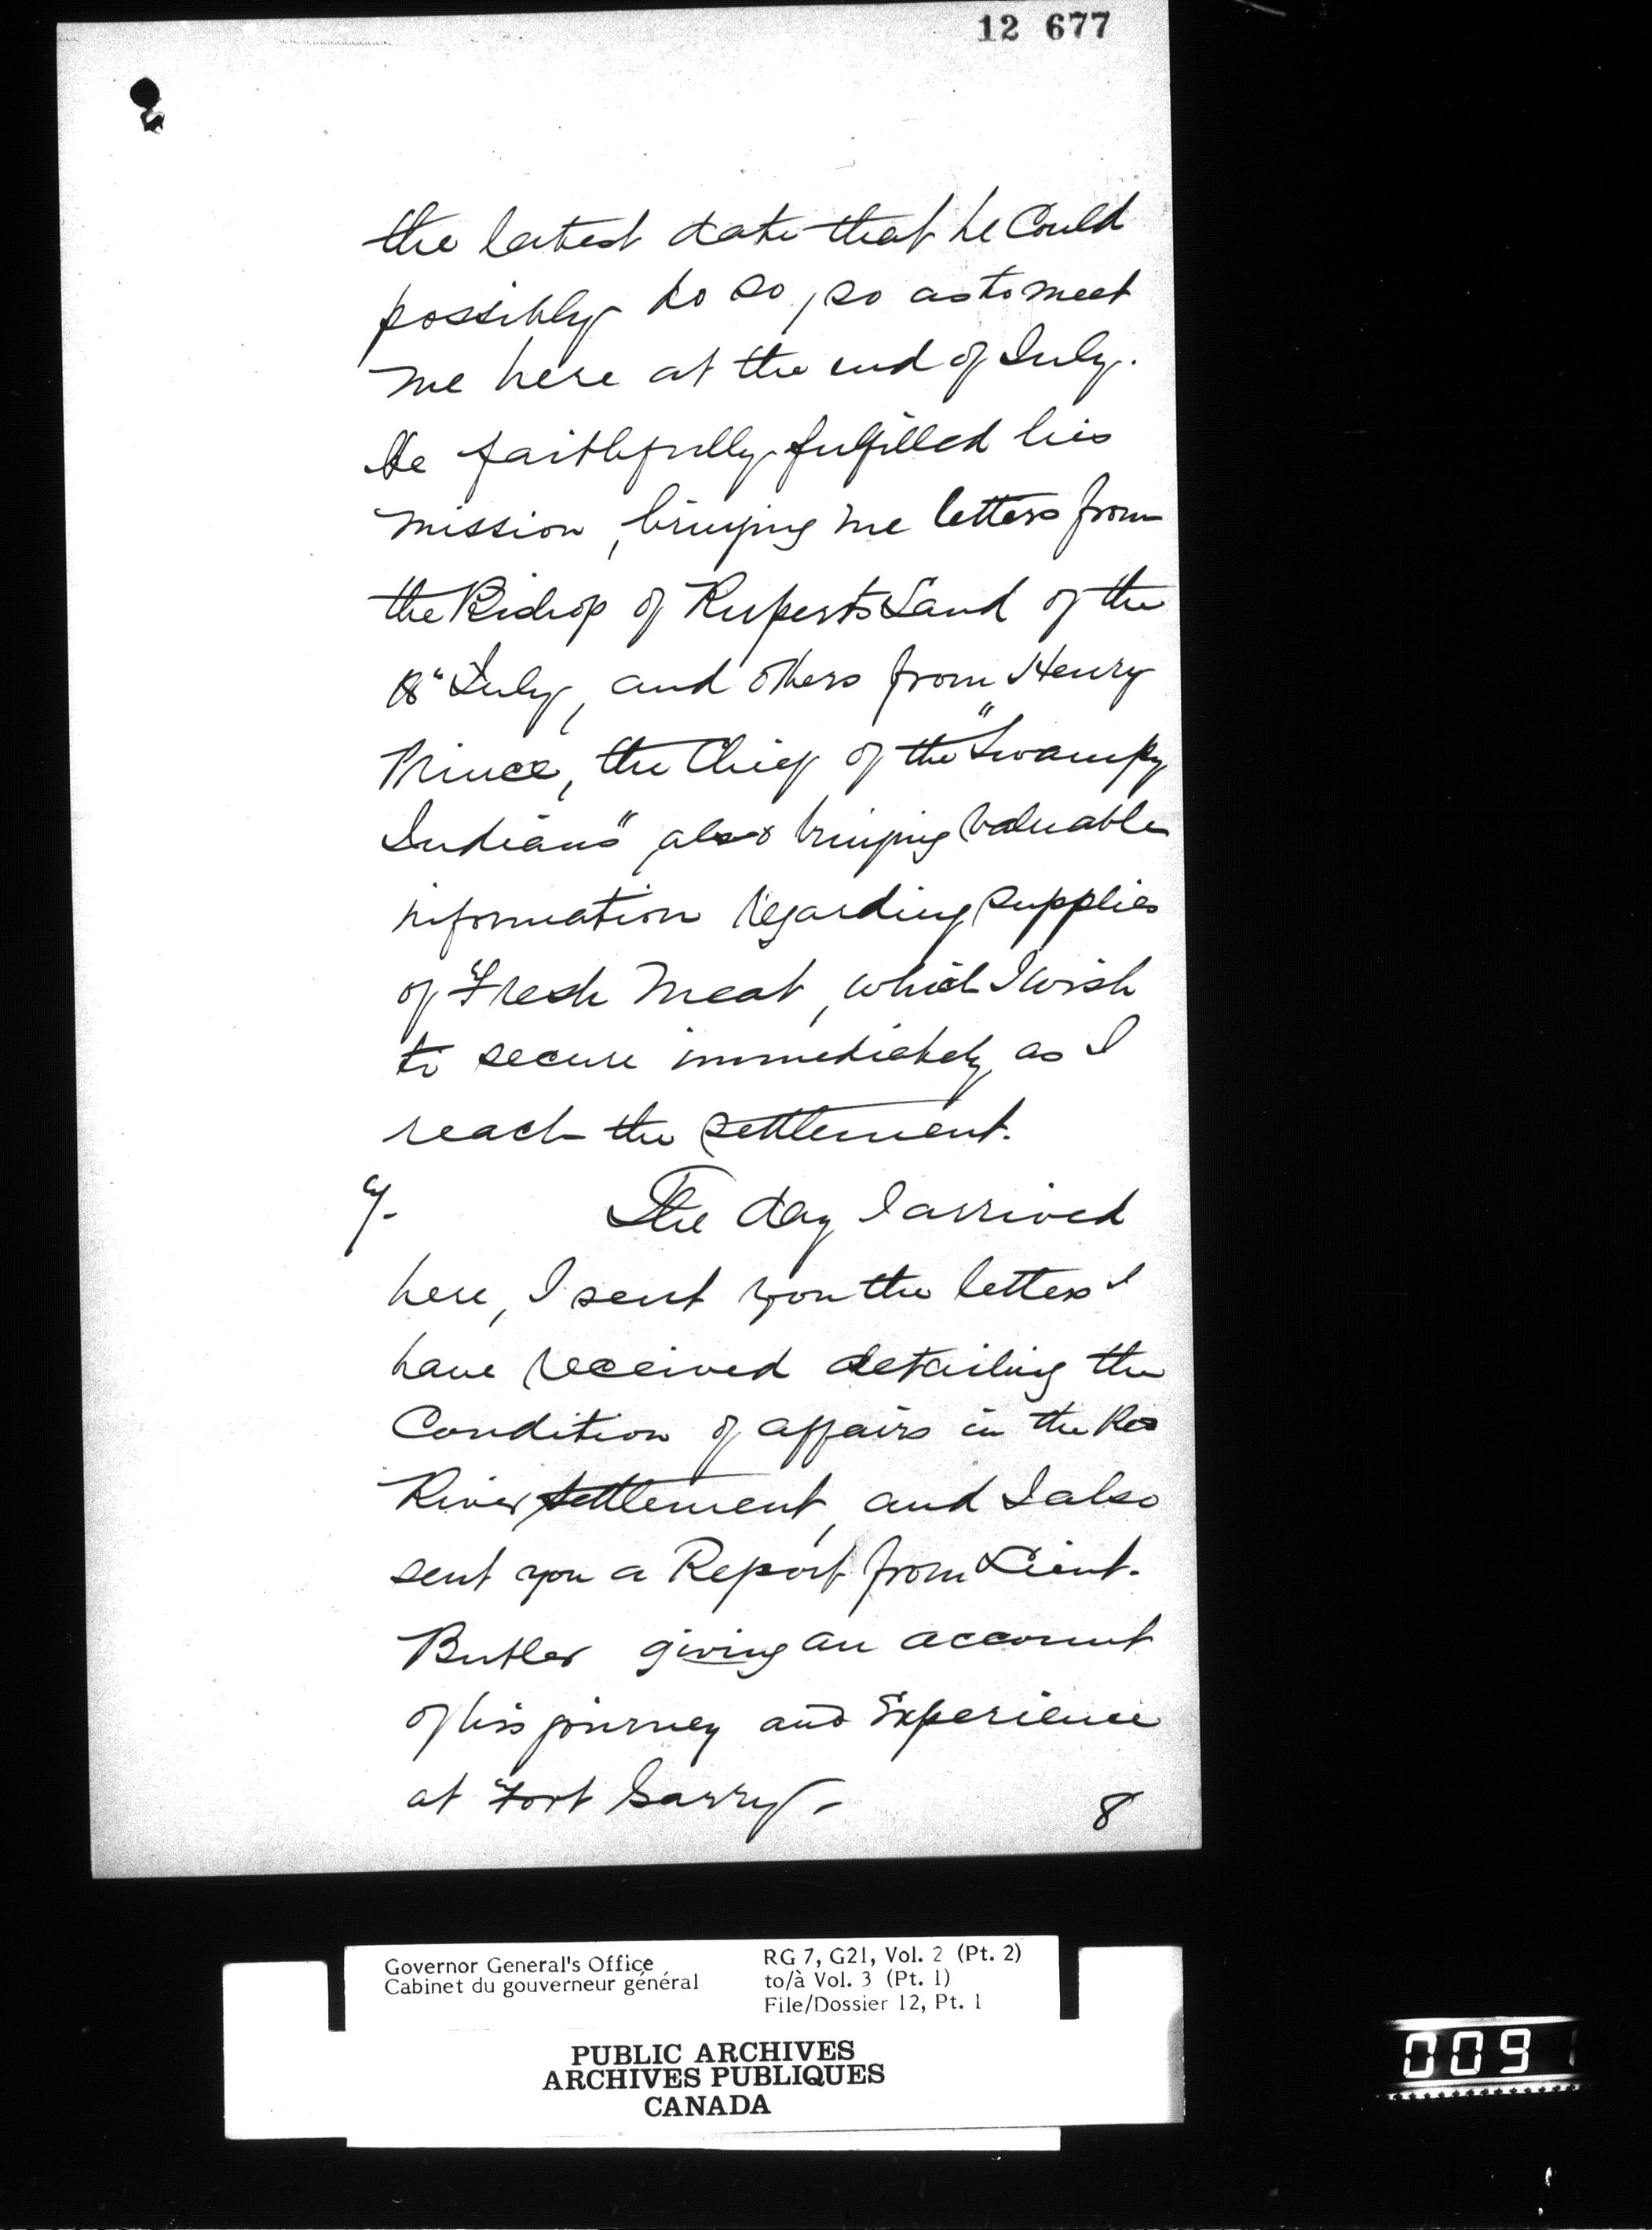 12 677
the latest date that he Could
possibly do so, so as to meet
me here at the end of July.
He faithfully fulfilled his
mission, bringing me letters from
the Bishop of Ruperts Land of the
July, and others from Henry
Prince, the Chief of the "Swampy
Indians" also bringing valuable
information regarding supplies
of Fresh Meat, which I wish
to secure immediately as I
reach the settlement.
The day I arrived
here, I sent you the letters I
have received detailing the
Condition of affairs in the Red
River settlement, and I also
sent you a Report from Lieut.
Butler giving an account
of his journey and Experience
at Fort Garry.-
8
Governor General's Office
Cabinet du gouverneur général
RG 7, G21, Vol. 2 (Pt. 2)
to/à Vol. 3 (Pt. 1)
File/Dossier 12, Pt. 1
PUBLIC ARCHIVES
ARCHIVES PUBLIQUES
CANADA
009